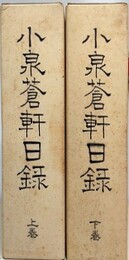 小泉蒼軒日録
上巻
小泉蒼軒日録
下巻